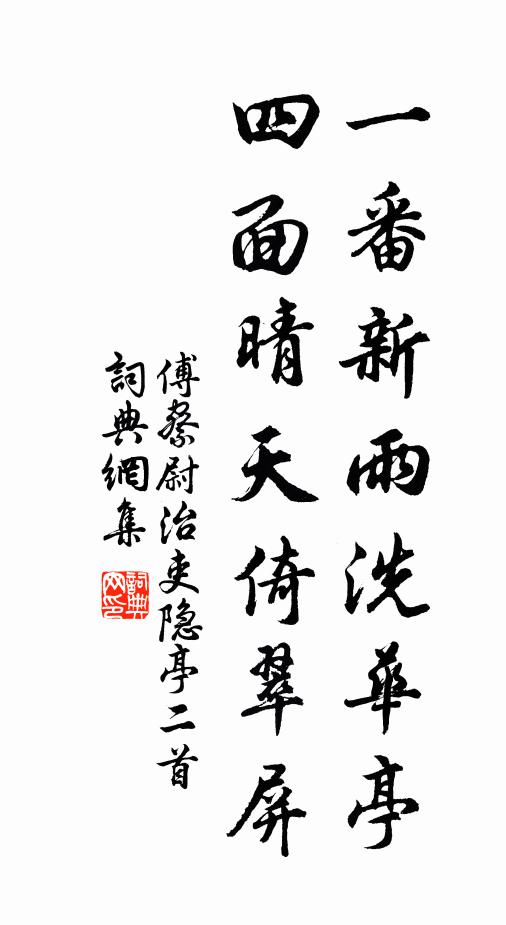 一番新雨洗華亭
四面晴天倚翠屏
傅察尉治吏隐亭二首
詞典網集
詞典网印